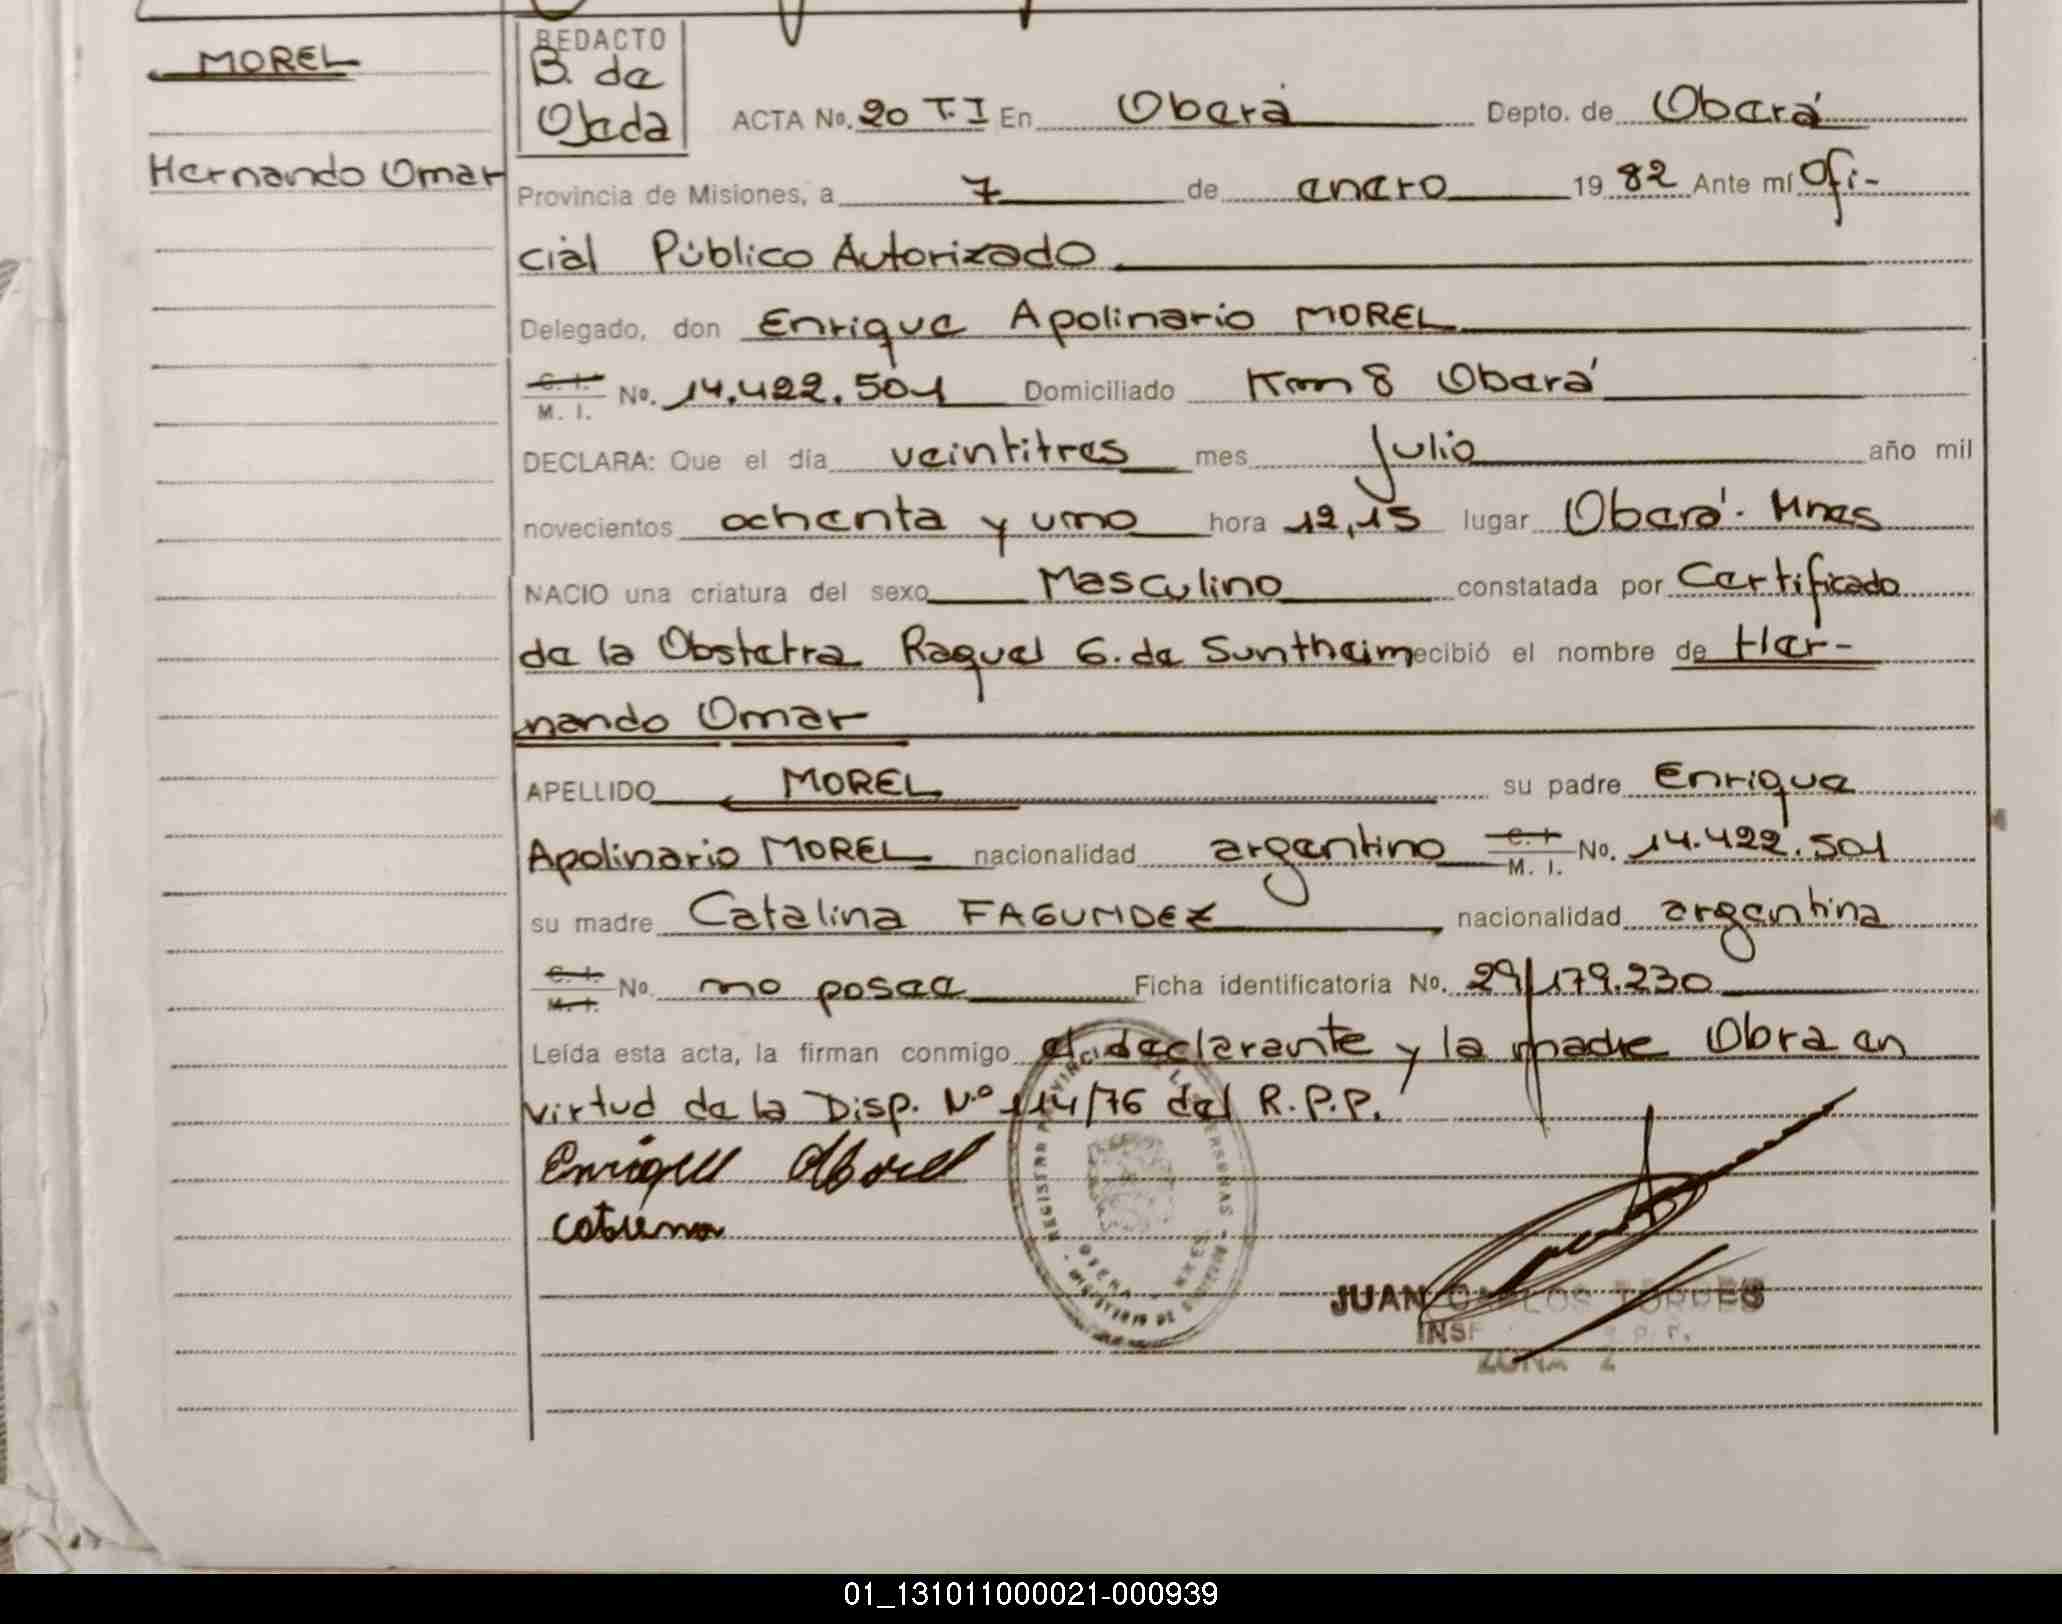 MOREL
Hernando Omar
REDACTO
B. de
Ojeda
ACTA No. 20 T.I En Oberá Depto. de Oberá
Provincia de Misiones, a 7 de enero 19 82 Ante mí Ofi-
cial Público Autorizado
Delegado, don Enrique Apolinario MOREL
C. I. M. I. No. 14.422.501 Domiciliado Km 8 Oberá
DECLARA: Que el día veintitres mes Julio año mil
novecientos ochenta y uno hora 12,15 lugar Oberá. Mnes
NACIO una criatura del sexo Masculino constatada por Certificado
de la Obstetra Raquel G. de Suntheim ecibió el nombre de Her-
nando Omar
APELLIDO MOREL su padre Enrique
Apolinario MOREL nacionalidad argentino C. I. M. I. No. 14.422.501
su madre Catalina FAGUNDEZ nacionalidad argentina
C. I. M. I. No. no posee Ficha identificatoria No. 29/179.230
Leída esta acta, la firman conmigo el declarante y la madre Obra en
virtud de la Disp. N.º 114/76 del R.P.P.
Enrique Morel
JUAN CARLOS TORRES
ZONA 2
01_131011000021-000939